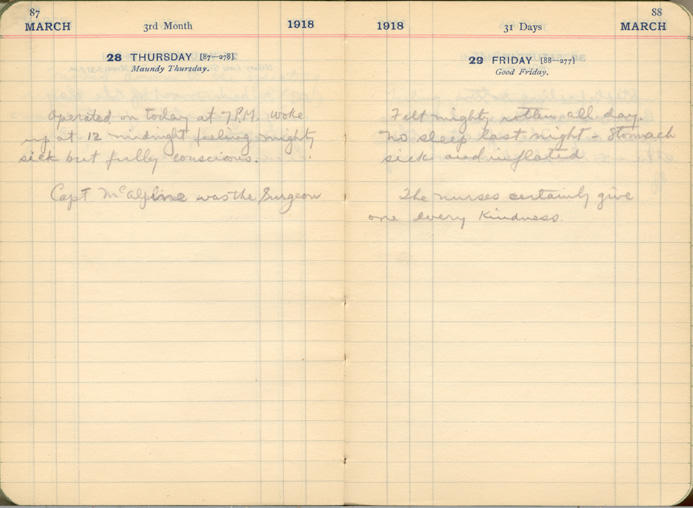 87
MARCH 3rd Month 1918
28 THURSDAY [87—278]
Maundy Thursday.
Operated on today at 7 P.M. Woke
up at 12 midnight feeling mighty
sick but fully conscious.
Capt McAlpine was the Surgeon
88
1918 31 Days MARCH
29 FRIDAY [88—277]
Good Friday.
Felt mighty rotten all day.
No sleep last night - Stomach
sick and inflated
The nurses certainly give
one every Kindness.